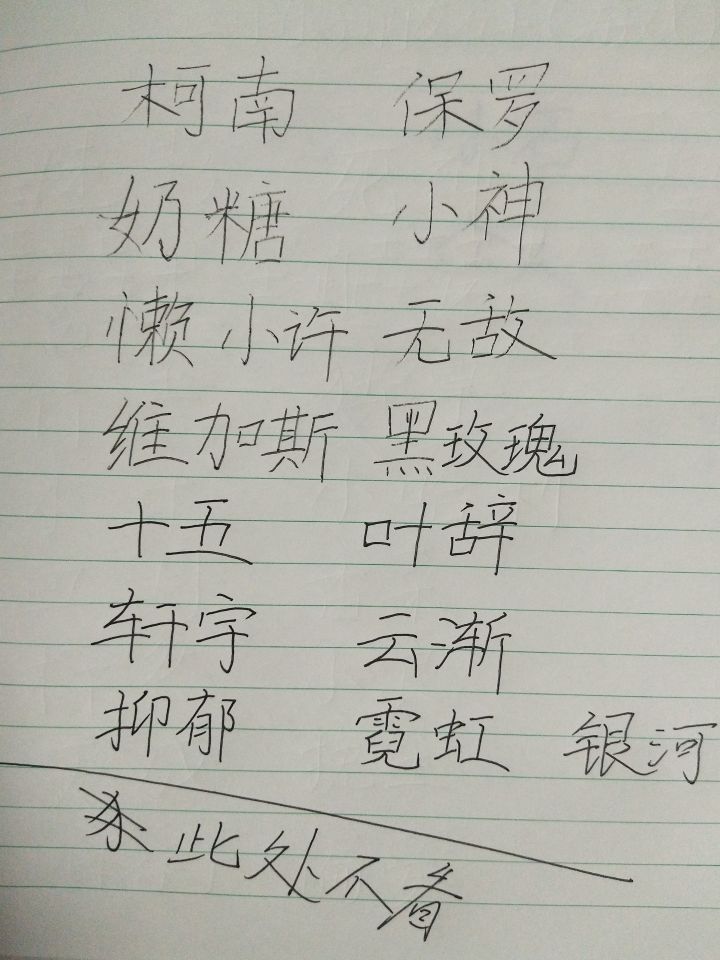 柯南 保罗
奶糖 小神
懒小许 无敌
维加斯 黑玫瑰
十五 叶辞
轩宇 云渐
抑郁 霓虹 银河
此处不看